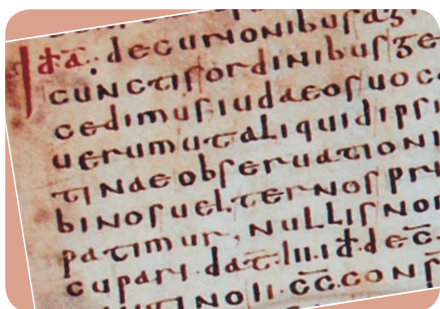 Id̄ā. decurionibus agr
cunctis ordinibus ge
cedimus iudaeos uoc
uerum ut aliquid ipsi
tinae obseruationi
binos uel ternos pri
patimur, nullis noi
cupari. dat̄. iii. id̄. dec̄.
tino ii. c̄c̄. cons̄